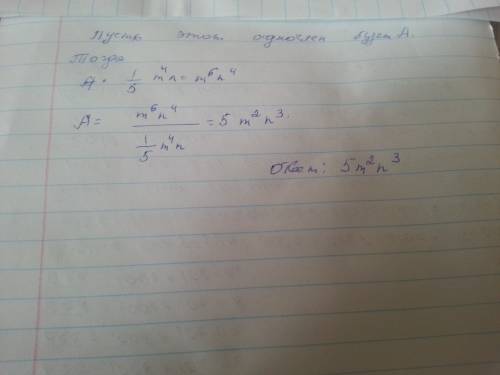 Пусть этот одночлен будет A.
Тогда
A · 1/5 m⁴n = m⁶n⁴
A = m⁶n⁴ / 1/5 m⁴n = 5 m²n³.
Ответ: 5m²n³